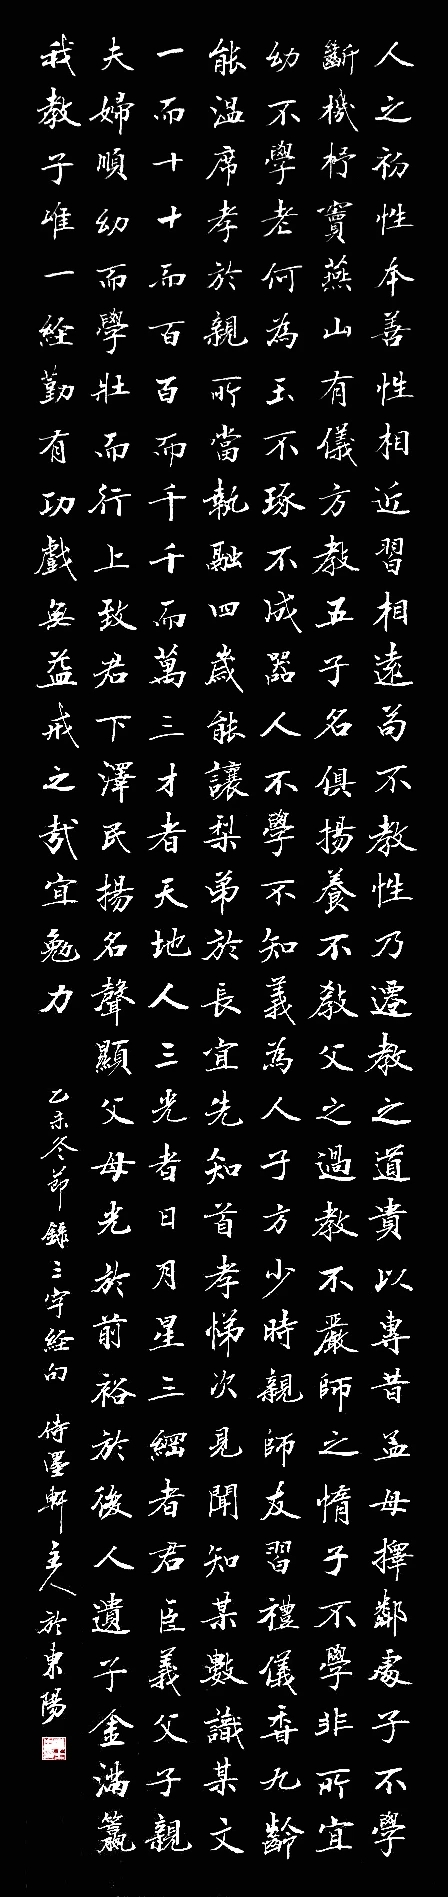 人之初性本善性相近習相遠苟不教性乃遷教之道貴以專昔孟母擇鄰處子不學
斷機杼竇燕山有儀方教五子名俱揚養不教父之過教不嚴師之惰子不學非所宜
幼不學老何為玉不琢不成器人不學不知義為人子方少時親師友習禮儀香九齡
能溫席孝於親所當執融四歲能讓梨弟於長宜先知首孝悌次見聞知某數識某文
一而十十而百百而千千而萬三才者天地人三光者日月星三綱者君臣義父子親
夫婦順幼而學壯而行上致君下澤民揚名聲顯父母光於前裕於後人遺子金滿籯
我教子唯一經勤有功戲無益戒之哉宜勉力
乙未冬節錄三字經句 侍墨軒主人於東陽